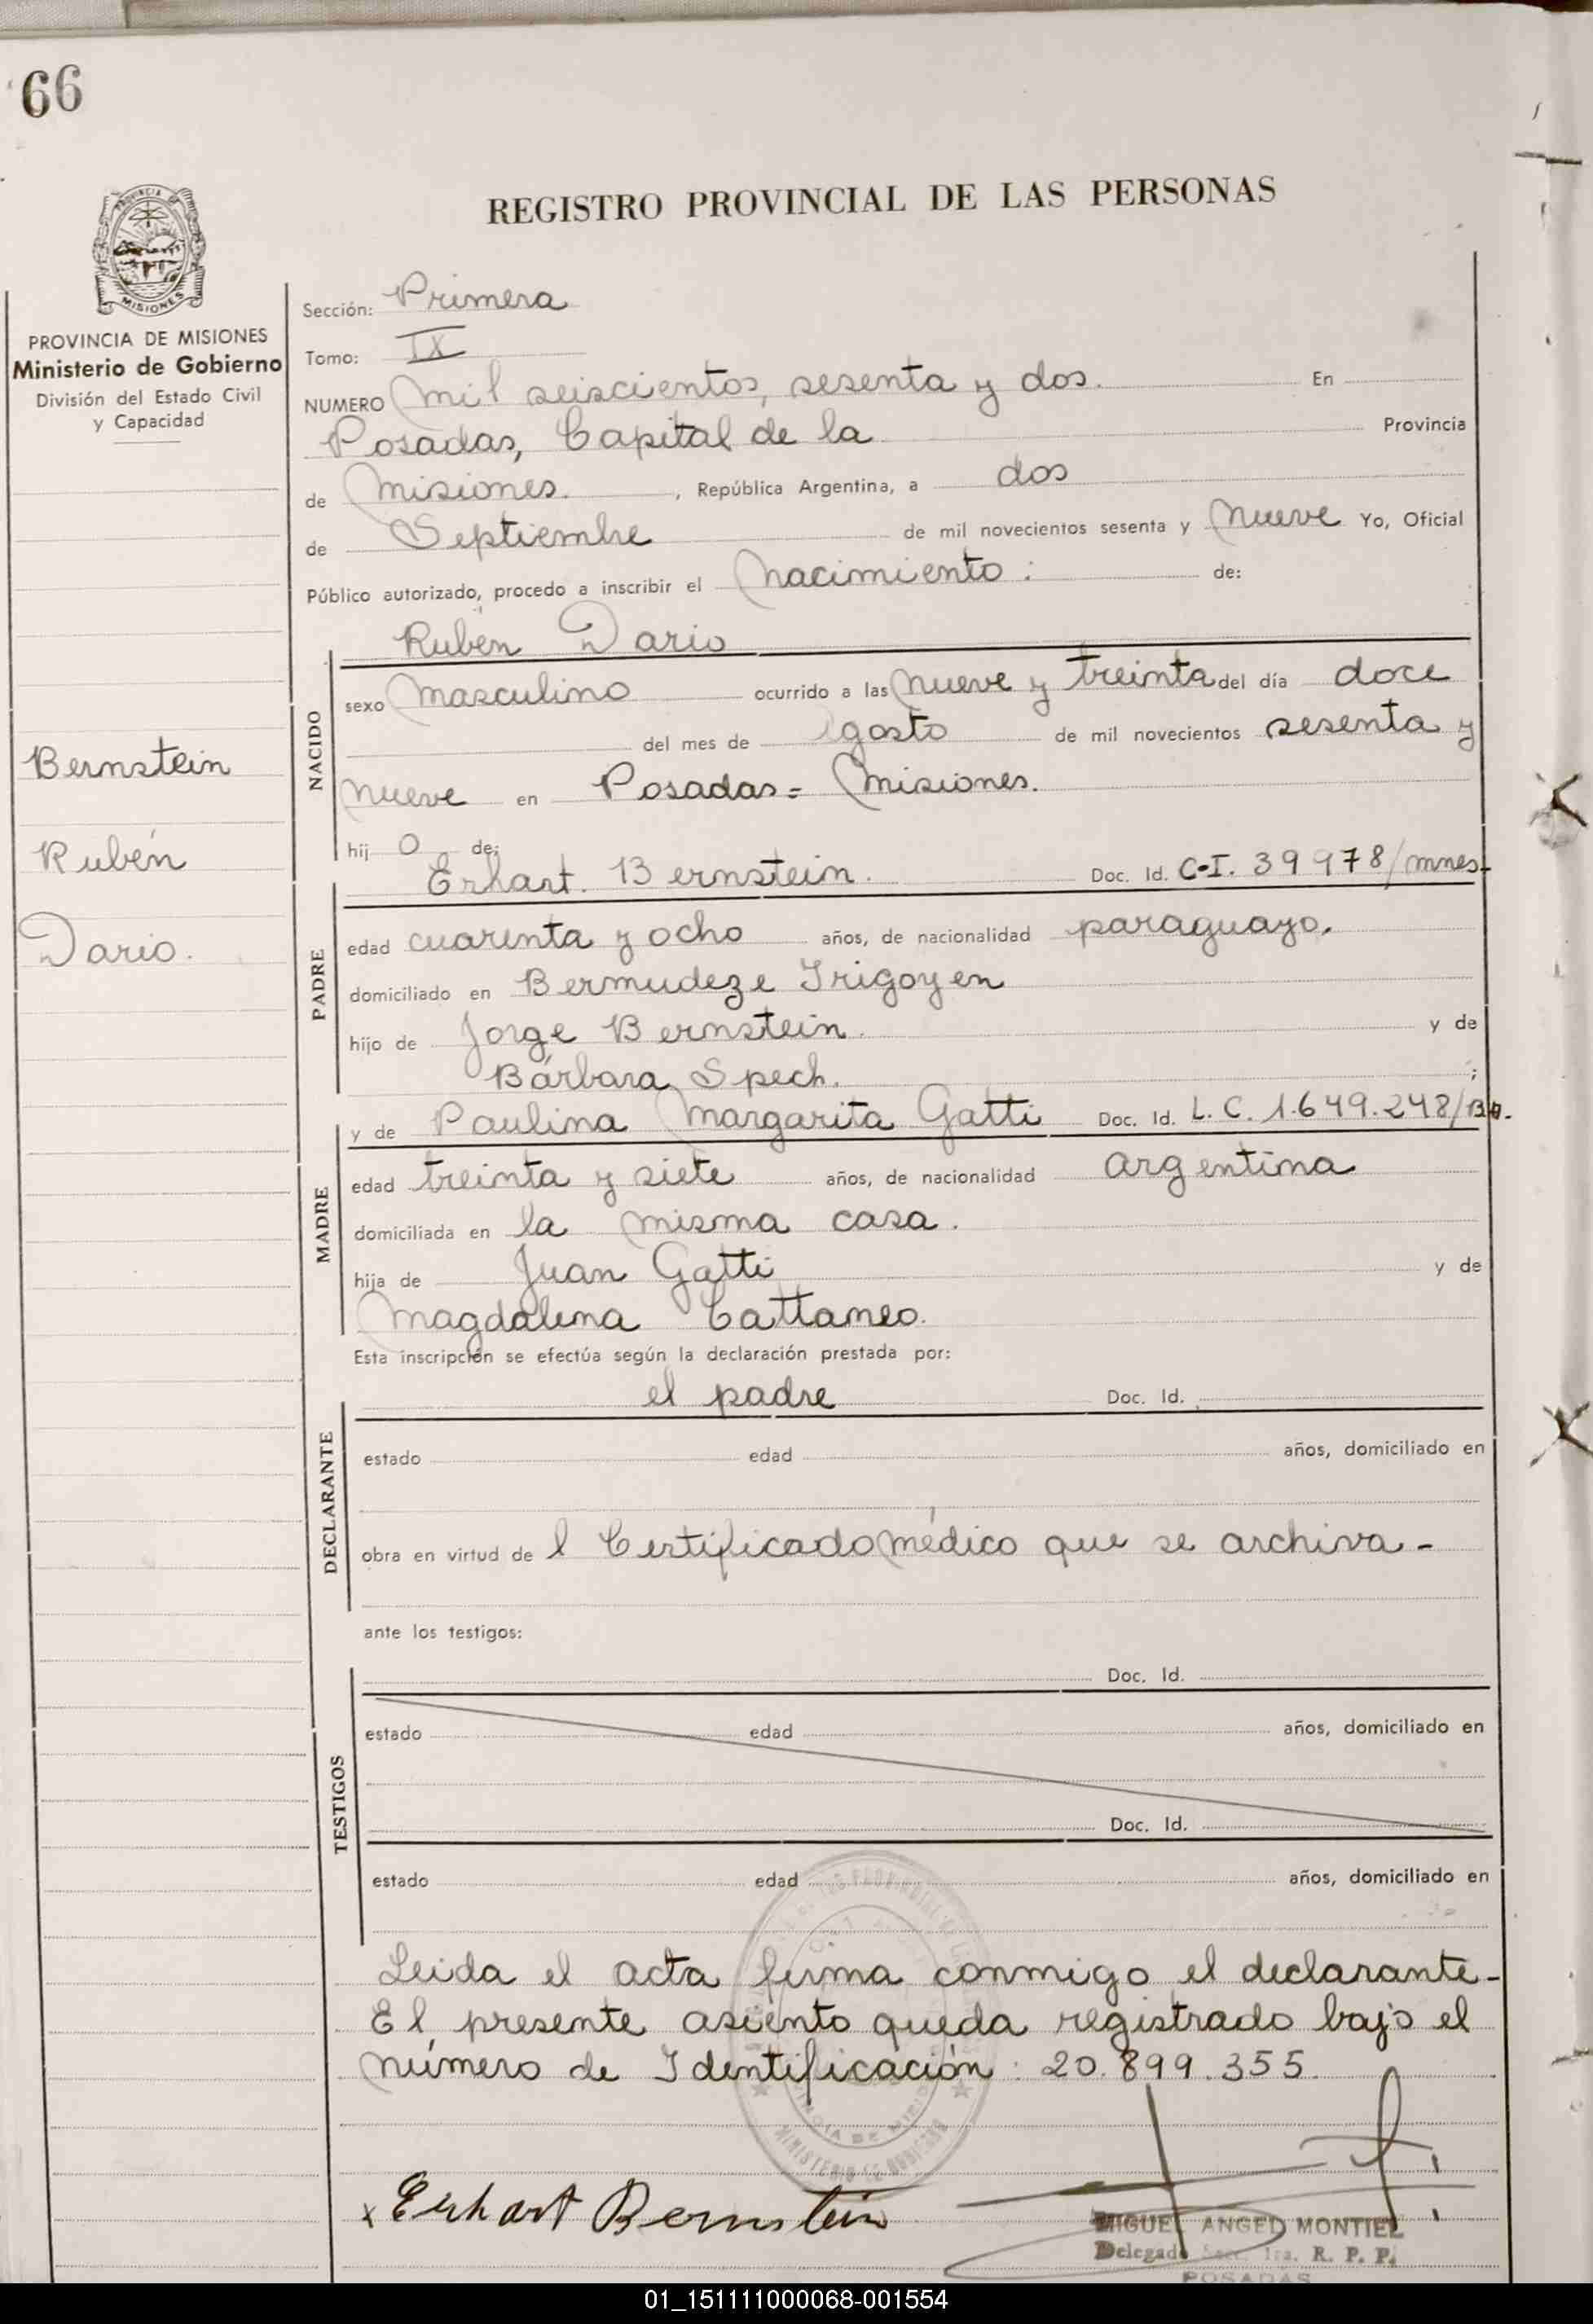 66
PROVINCIA
MISIONES
REGISTRO PROVINCIAL DE LAS PERSONAS
PROVINCIA DE MISIONES
Ministerio de Gobierno
División del Estado Civil
y Capacidad
Bernstein
Rubén
Dario.
Sección: Primera
Tomo: IX
NUMERO Mil seiscientos, sesenta y dos. En
Posadas, Capital de la Provincia
de Misiones. , República Argentina, a dos
de Septiembre de mil novecientos sesenta y Nueve Yo, Oficial
Público autorizado, procedo a inscribir el Nacimiento: de:
Rubén Dario
NACIDO
sexo Masculino ocurrido a las Nueve y treinta del día doce
del mes de Agosto de mil novecientos sesenta y
Nueve en Posadas = Misiones.
hij o de:
Erhart. Bernstein. Doc. Id. C.I. 39978/mnes-
PADRE
edad cuarenta y ocho años, de nacionalidad paraguayo.
domiciliado en Bermudez e Irigoyen
hijo de Jorge Bernstein. y de
Bárbara Spech. ;
y de Paulina Margarita Gatti Doc. Id. L.C. 1.649.248/
MADRE
edad treinta y siete años, de nacionalidad argentina
domiciliada en la misma casa.
hija de Juan Gatti y de
Magdalena Cattaneo.
Esta inscripción se efectúa según la declaración prestada por:
el padre Doc. Id.
DECLARANTE
estado edad años, domiciliado en
obra en virtud de l Certificado médico que se archiva-
ante los testigos:
Doc. Id.
TESTIGOS
estado edad años, domiciliado en
Doc. Id.
estado edad años, domiciliado en
Leida el acta firma conmigo el declarante-
El presente asiento queda registrado bajo el
número de Identificación: 20.899.355.
x Erhart Bernstein
MINISTERIO DE GOBIERNO
MIGUEL ANGEL MONTIEL
Delegado Secc. 1ra. R. P. P.
POSADAS
01_151111000068-001554